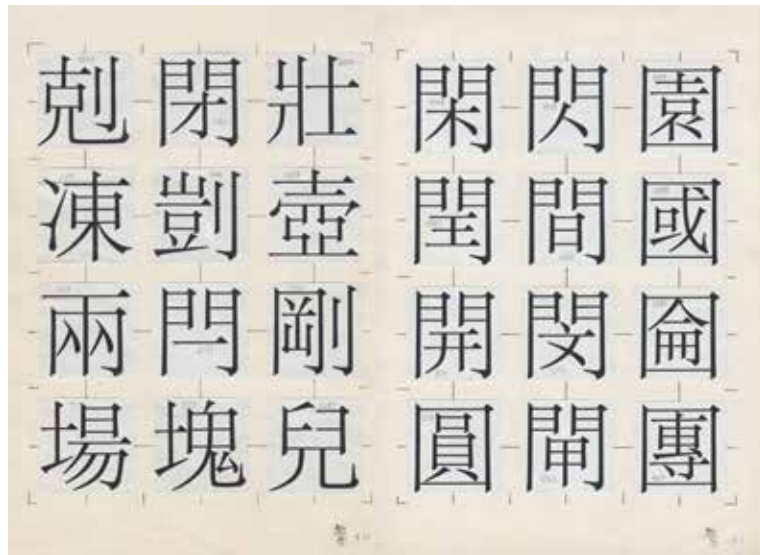 剋閉壯
凍剴壺
兩閂剛
場塊兒
閑閃園
閏間國
開閔圇
圓閘團